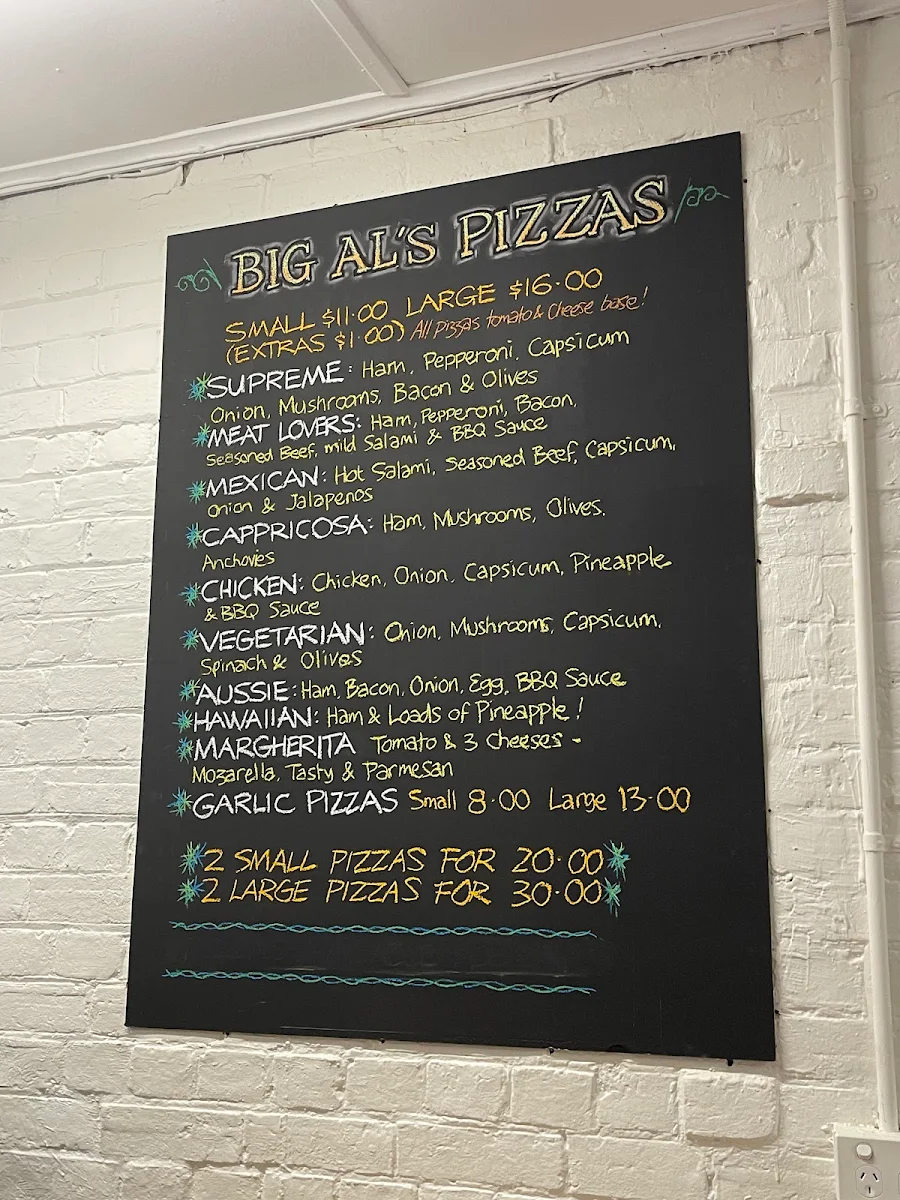 BIG AL'S PIZZAS
SMALL $11.00 LARGE $16.00
(EXTRAS $1.00) All Pizzas tomato & Cheese base!
SUPREME: Ham, Pepperoni, Capsicum
Onion, Mushrooms, Bacon & Olives
MEAT LOVERS: Ham, Pepperoni, Bacon,
Seasoned Beef, mild Salami & BBQ Sauce
MEXICAN: Hot Salami, Seasoned Beef, Capsicum,
Onion & Jalapenos
CAPPRICOSA: Ham, Mushrooms, Olives,
Anchovies
CHICKEN: Chicken, Onion, Capsicum, Pineapple
& BBQ Sauce
VEGETARIAN: Onion, Mushrooms, Capsicum,
Spinach & Olives
AUSSIE: Ham, Bacon, Onion, Egg, BBQ Sauce
HAWAIIAN: Ham & Loads of Pineapple!
MARGHERITA Tomato & 3 Cheeses -
Mozarella, Tasty & Parmesan
GARLIC PIZZAS Small 8.00 Large 13.00
2 SMALL PIZZAS FOR 20.00
2 LARGE PIZZAS FOR 30.00